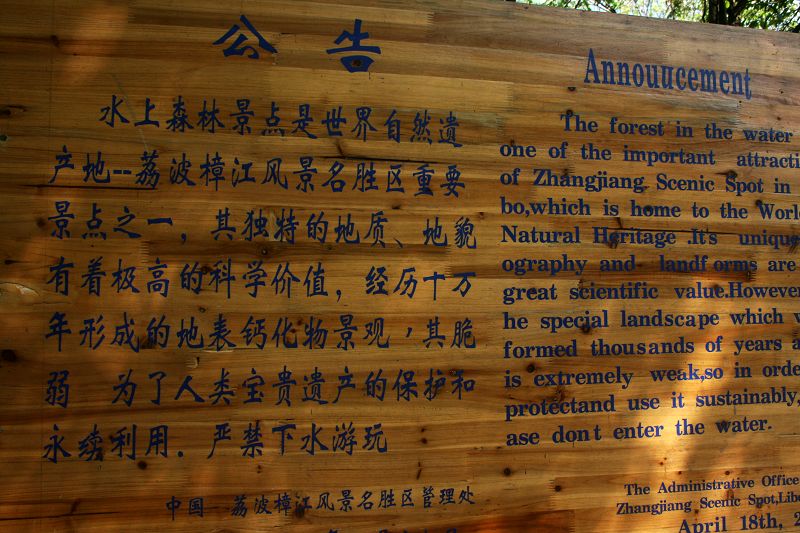 公告
水上森林景点是世界自然遗
产地--荔波樟江风景名胜区重要
景点之一，其独特的地质、地貌
有着极高的科学价值，经历十万
年形成的地表钙化物景观，其脆
弱 为了人类宝贵遗产的保护和
永续利用．严禁下水游玩
中国 荔波樟江风景名胜区管理处
Announcement
The forest in the water
one of the important attracti
of Zhangjiang Scenic Spot in
bo,which is home to the Worl
Natural Heritage .It's unique
ography and landf orms are
great scientific value.However
he special landscape which
formed thousands of years a
is extremely weak,so in orde
protectand use it sustainably,
ase don't enter the water.
The Administrative Office
Zhangjiang Scenic Spot,Libo
April 18th, 2